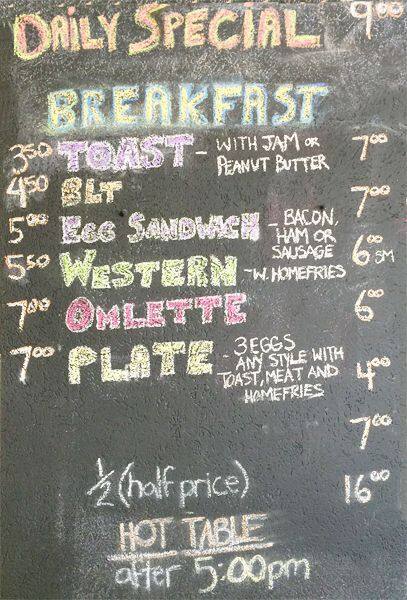 DAILY SPECIAL 9.00
BREAKFAST
3.50 TOAST - WITH JAM OR PEANUT BUTTER 7.00
4.50 BLT 7.00
5.00 EGG SANDWACH - BACON, HAM OR SAUSAGE 6.00 SM
5.50 WESTERN - W. HOMEFRIES
7.00 OMLETTE 6.00
7.00 PLATE - 3 EGGS ANY STYLE WITH TOAST, MEAT AND HOMEFRIES 4.00
7.00
1/2 (half price) 16.00
HOT TABLE
after 5:00pm